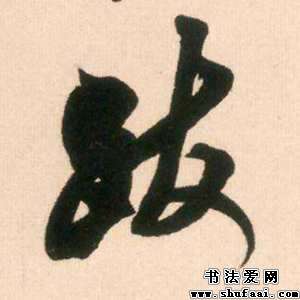 跋
书法爱网
www.shufaai.com